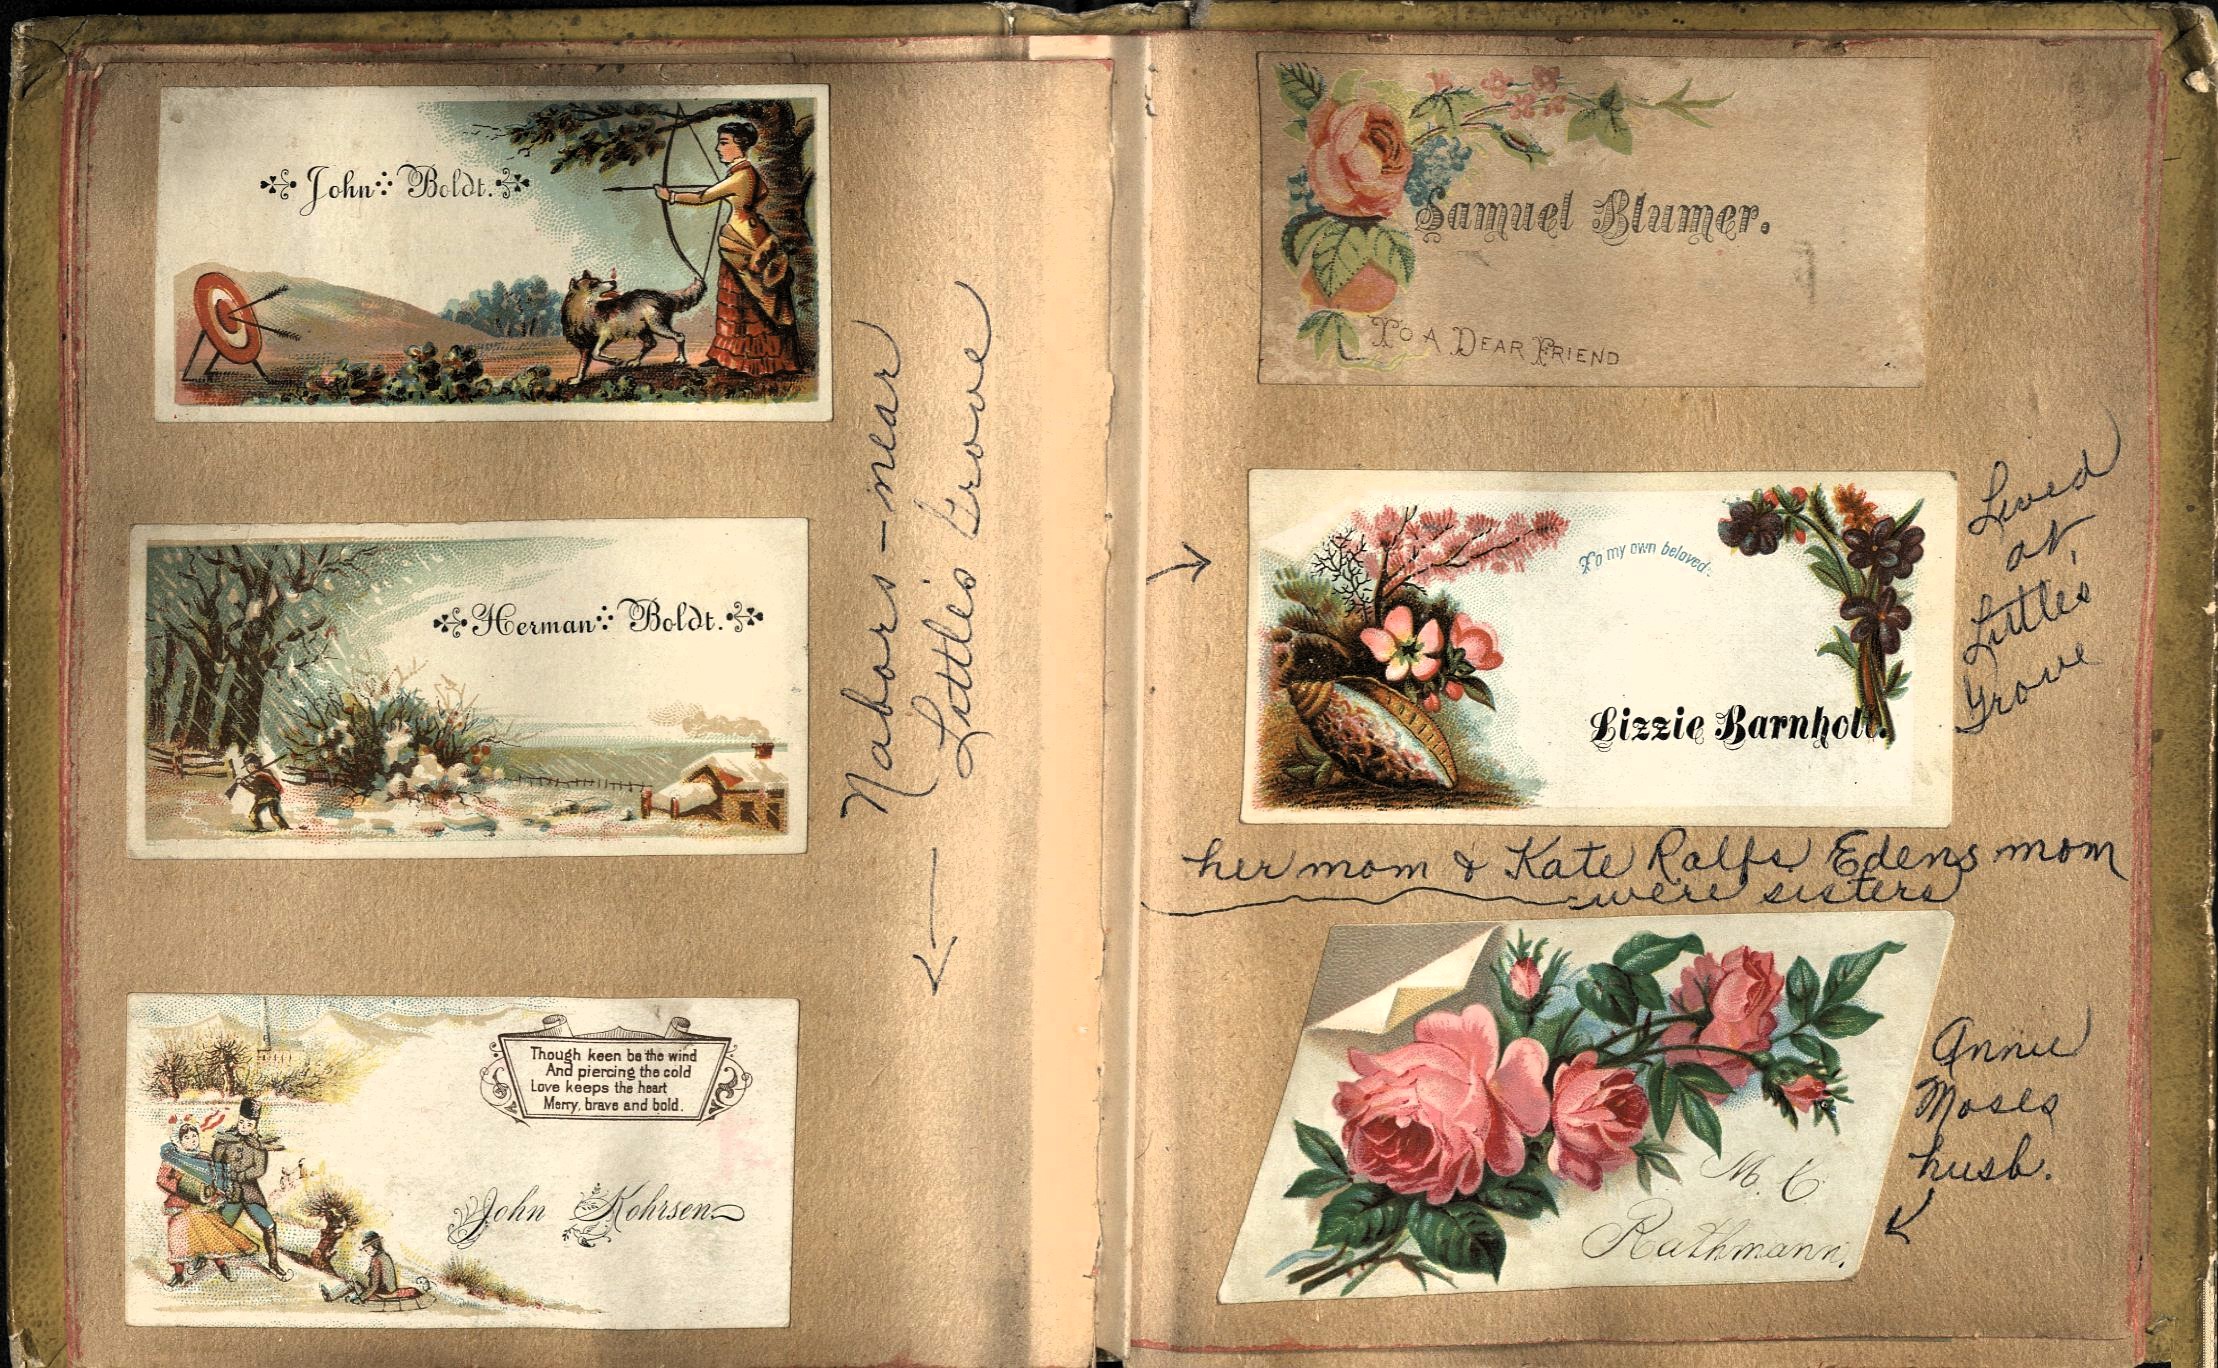 John Boldt.
Nabors - near
Littles Grove
Herman Boldt.
Though keen be the wind
And piercing the cold
Love keeps the heart
Merry, brave and bold.
John Kohrsen
Samuel Blumer.
TO A DEAR FRIEND
To my own beloved.
Lizzie Barnholt.
Lived
at
Littles
Grove
her mom & Kate Ralfs Edens mom
were sisters
M. C.
Rathmann.
Annie
Moses
husb.